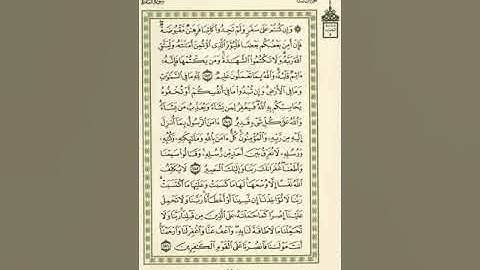 ۞ وَإِن كُنتُمْ عَلَىٰ سَفَرٍ وَلَمْ تَجِدُوا۟ كَاتِبًا فَرِهَٰنٌ مَّقْبُوضَةٌ
فَإِنْ أَمِنَ بَعْضُكُم بَعْضًا فَلْيُؤَدِّ ٱلَّذِى ٱؤْتُمِنَ أَمَٰنَتَهُۥ وَلْيَتَّقِ
ٱللَّهَ رَبَّهُۥ وَلَا تَكْتُمُوا۟ ٱلشَّهَٰدَةَ وَمَن يَكْتُمْهَا فَإِنَّهُۥٓ
ءَاثِمٌ قَلْبُهُۥ وَٱللَّهُ بِمَا تَعْمَلُونَ عَلِيمٌ ٢٨٣ لِّلَّهِ مَا فِى ٱلسَّمَٰوَٰتِ
وَمَا فِى ٱلْأَرْضِ وَإِن تُبْدُوا۟ مَا فِىٓ أَنفُسِكُمْ أَوْ تُخْفُوهُ
يُحَاسِبْكُم بِهِ ٱللَّهُ فَيَغْفِرُ لِمَن يَشَآءُ وَيُعَذِّبُ مَن يَشَآءُ
وَٱللَّهُ عَلَىٰ كُلِّ شَىْءٍ قَدِيرٌ ٢٨٤ ءَامَنَ ٱلرَّسُولُ بِمَآ أُنزِلَ
إِلَيْهِ مِن رَّبِّهِۦ وَٱلْمُؤْمِنُونَ كُلٌّ ءَامَنَ بِٱللَّهِ وَمَلَٰٓئِكَتِهِۦ وَكُتُبِهِۦ
وَرُسُلِهِۦ لَا نُفَرِّقُ بَيْنَ أَحَدٍ مِّن رُّسُلِهِۦ وَقَالُوا۟ سَمِعْنَا
وَأَطَعْنَا غُفْرَانَكَ رَبَّنَا وَإِلَيْكَ ٱلْمَصِيرُ ٢٨٥ لَا يُكَلِّفُ
ٱللَّهُ نَفْسًا إِلَّا وُسْعَهَا لَهَا مَا كَسَبَتْ وَعَلَيْهَا مَا ٱكْتَسَبَتْ
رَبَّنَا لَا تُؤَاخِذْنَآ إِن نَّسِينَآ أَوْ أَخْطَأْنَا رَبَّنَا وَلَا تَحْمِلْ
عَلَيْنَآ إِصْرًا كَمَا حَمَلْتَهُۥ عَلَى ٱلَّذِينَ مِن قَبْلِنَا رَبَّنَا وَلَا
تُحَمِّلْنَا مَا لَا طَاقَةَ لَنَا بِهِۦ وَٱعْفُ عَنَّا وَٱغْفِرْ لَنَا وَٱرْحَمْنَآ
أَنتَ مَوْلَىٰنَا فَٱنصُرْنَا عَلَى ٱلْقَوْمِ ٱلْكَٰفِرِينَ ٢٨٦